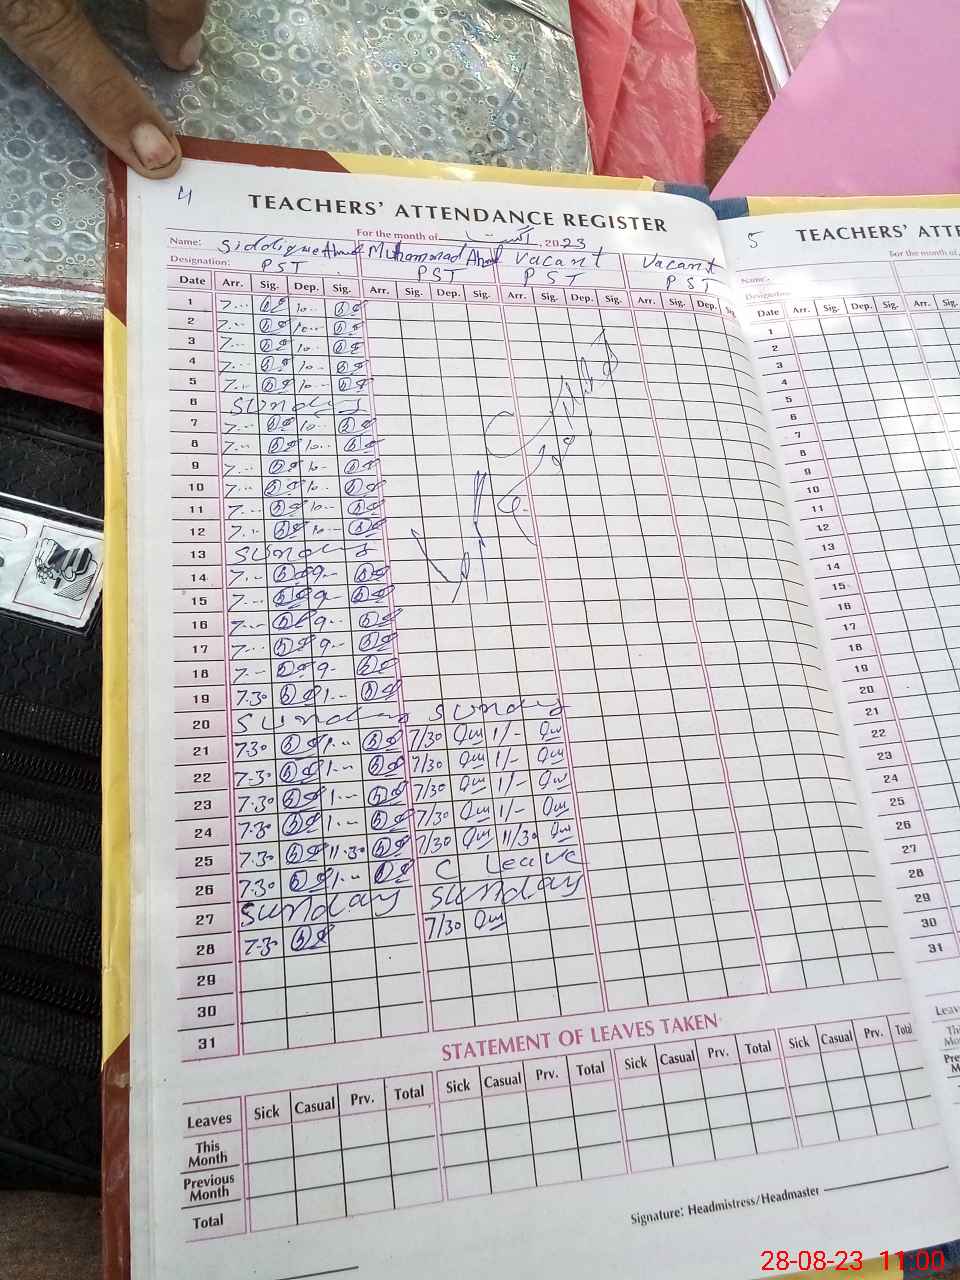 4
TEACHERS' ATTENDANCE REGISTER
For the month of اگست, 2023
Name: Siddique Ahmed Muhammad Ahmed Vacant Vacant
Designation: PST PST PST PST
Date Arr. Sig. Dep. Sig. Arr. Sig. Dep. Sig. Arr. Sig. Dep. Sig. Arr. Sig. Dep. Sig.
1 7... 10..
2 7... 10..
3 7... 10..
4 7... 10..
5 7... 10..
6 Sunday
7 7... 10..
8 7... 10..
9 7... 10..
10 7... 10..
11 7... 10..
12 7... 10..
13 Sunday
14 7... 9--
15 7... 9--
16 7... 9--
17 7... 9--
18 7... 9--
19 7.30 1--
20 Sunday Sunday
21 7.30 1-- 7/30 1/-
22 7.30 1-- 7/30 1/-
23 7.30 1-- 7/30 1/-
24 7.30 1-- 7/30 1/-
25 7.30 11.30 7/30 11/30
26 7.30 1-- C Leave
27 Sunday Sunday
28 7.30 7/30
29
30
31
STATEMENT OF LEAVES TAKEN
Leaves Sick Casual Prv. Total Sick Casual Prv. Total Sick Casual Prv. Total Sick Casual Prv. Total
This Month
Previous Month
Total
Signature: Headmistress/Headmaster
5
TEACHERS' ATTE
For the month of
Name:
Designation
Date Arr. Sig. Dep. Sig. Arr. Sig.
1
2
3
4
5
6
7
8
9
10
11
12
13
14
15
16
17
18
19
20
21
22
23
24
25
26
27
28
29
30
31
28-08-23 11:00